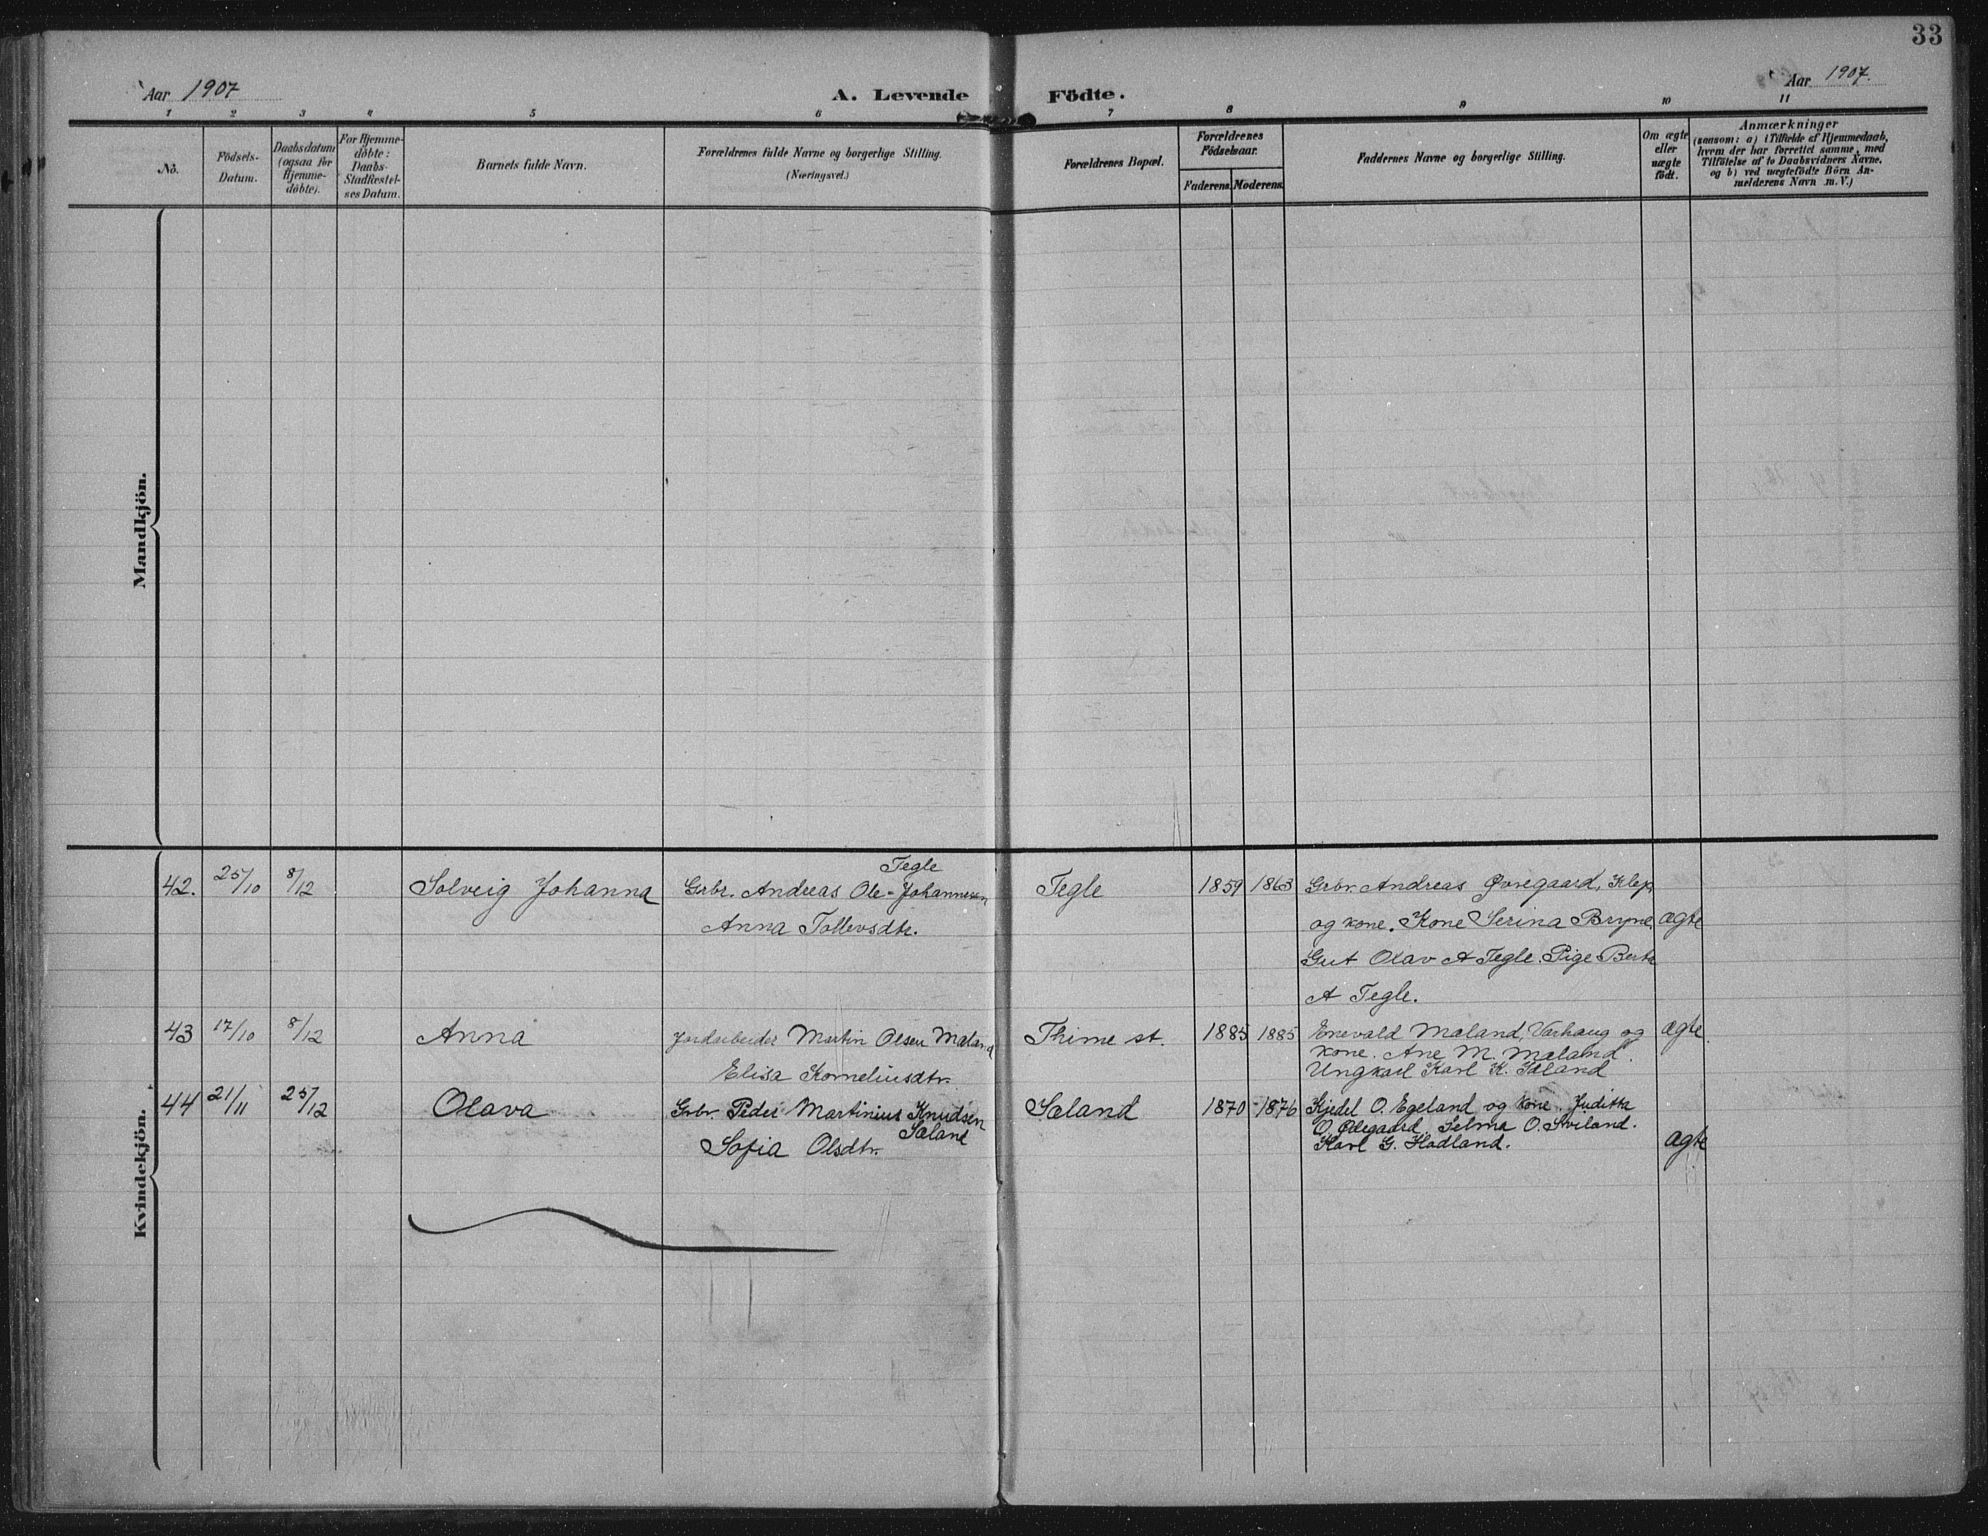 33
Aar 1907
A. Levende Födte.
Aar 1907.
1 2 3 4 5 6 7 8 9 10 11
No.
Födsels-
Datum.
Daabsdatum
(ogsaa for
Hjemme-
döbte).
For Hjemme-
döbte:
Daabs-
Stadfæstel-
ses Datum.
Barnets fulde Navn.
Forældrenes fulde Navne og borgerlige Stilling.
(Næringsvei.)
Forældrenes Bopæl.
Forældrenes
Födselsaar.
Faderens. Moderens.
Faddernes Navne og borgerlige Stilling.
Om ægte
eller
uægte
födt.
Anmærkninger
(saasom: a) i Tilfælde af Hjemmedaab,
hvem der har forrettet samme, med
Tilföielse af to Daabsvidners Navne,
og b) ved uægtefödte Börn An-
melderens Navn m. V.)
Mandkjön.
Kvindekjön.
42. 25/10 8/12 Solveig Johanna
Grbr. Andreas Ole-Johannesen Tegle
Anna Tollevsdtr.
Tegle 1859 1863
Grbr. Andreas Øvregaard, Klep
og kone. Kone Serina Bryne,
Gut Olav A Tegle. Pige Berta
A Tegle.
ægte
43 17/10 8/12 Anna
Jordarbeider Martin Olsen Mæland
Elisa Korneliusdtr.
Thime st. 1885 1885
Enevald Mæland, Varhaug og
kone. Ane M. Mæland.
Ungkarl Karl K.
ægte.
44 21/11 25/12 Olava
Grbr. Peder Martinius Knudsen
Sæland
Sofia Olsdtr.
Sæland 1870 1876
Kjedel O. Egeland og kone. Juditha
O. Ødegaard. Selma O. Sviland.
Karl G. Hadland.
ægte